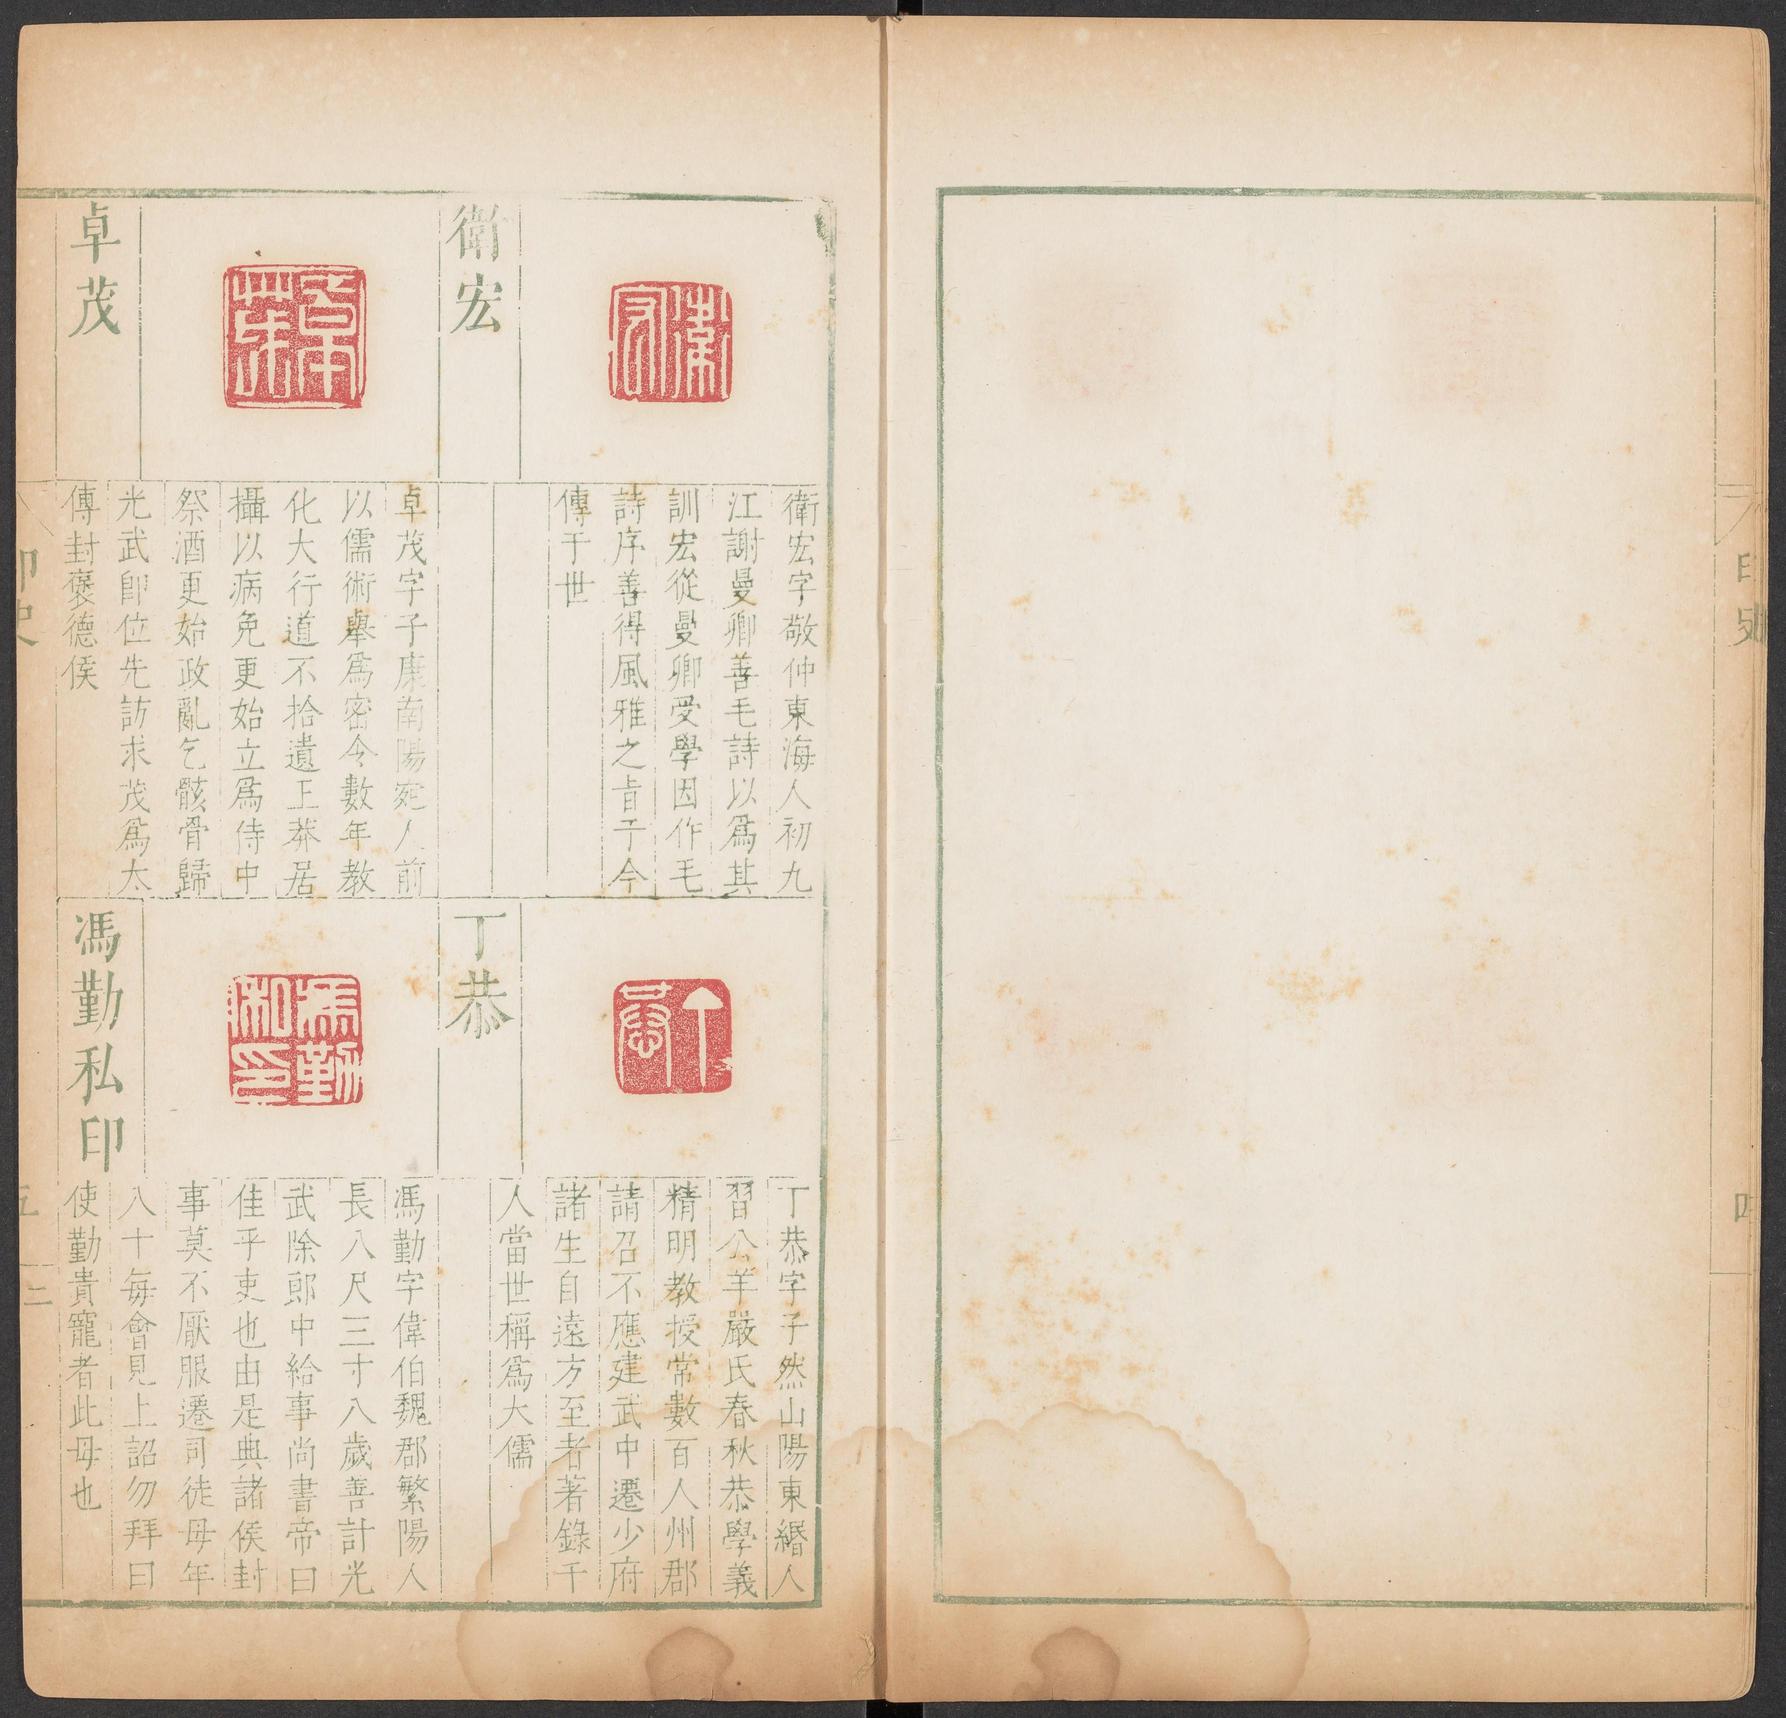 印史
四
衛宏
衛宏字敬仲東海人初九
江謝曼卿善毛詩以爲其
訓宏從曼卿受學因作毛
詩序善得風雅之旨于今
傳于世
卓茂
卓茂字子康南陽宛人前
以儒術舉爲密令數年教
化大行道不拾遺王莽居
攝以病免更始立爲侍中
祭酒更始政亂乞骸骨歸
光武卽位先訪求茂爲太
傅封褒德侯
丁恭
丁恭字子然山陽東緡人
習公羊嚴氏春秋恭學義
精明教授常數百人州郡
請召不應建武中遷少府
諸生自遠方至者著錄千
人當世稱爲大儒
馮勤私印
馮勤字偉伯魏郡繁陽人
長八尺三寸八歲善計光
武除郎中給事尚書帝曰
佳乎吏也由是典諸侯封
事莫不厭服遷司徒母年
八十每會見上詔勿拜曰
使勤貴寵者此母也
印史
五
二